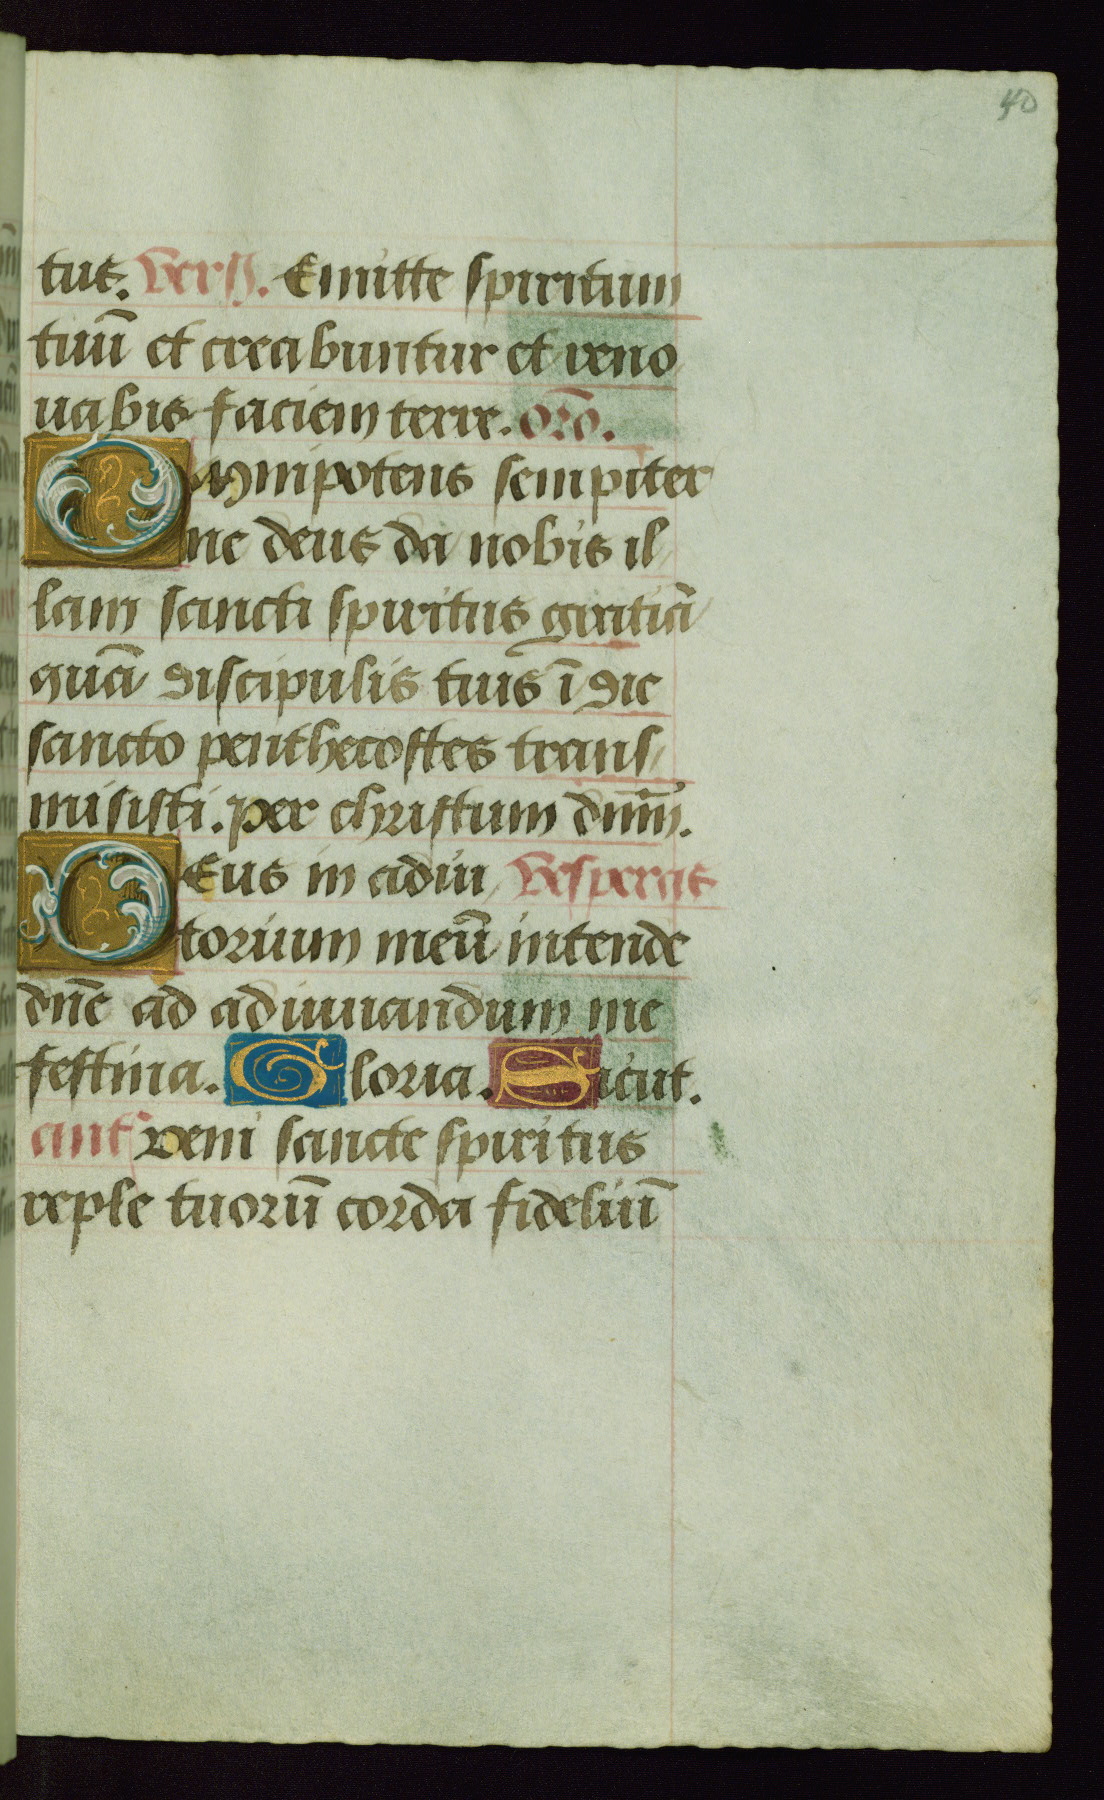 40
tus. Vers. Emitte spiritum
tuū et creabuntur et reno
uabis faciem terre. Orō.
Omnipotens sempiter
ne deus da nobis il
lam sancti spiritus gratiā
quā discipulis tuis ī die
sancto penthecostes trans
misisti. per christum dn̄m̄.
DEus in adiu Vesperas
torium meū intende
dn̄e ad adiuuandum me
festina. Gloria. Sicut.
ant̄ Veni sancte spiritus
reple tuorū corda fideliū